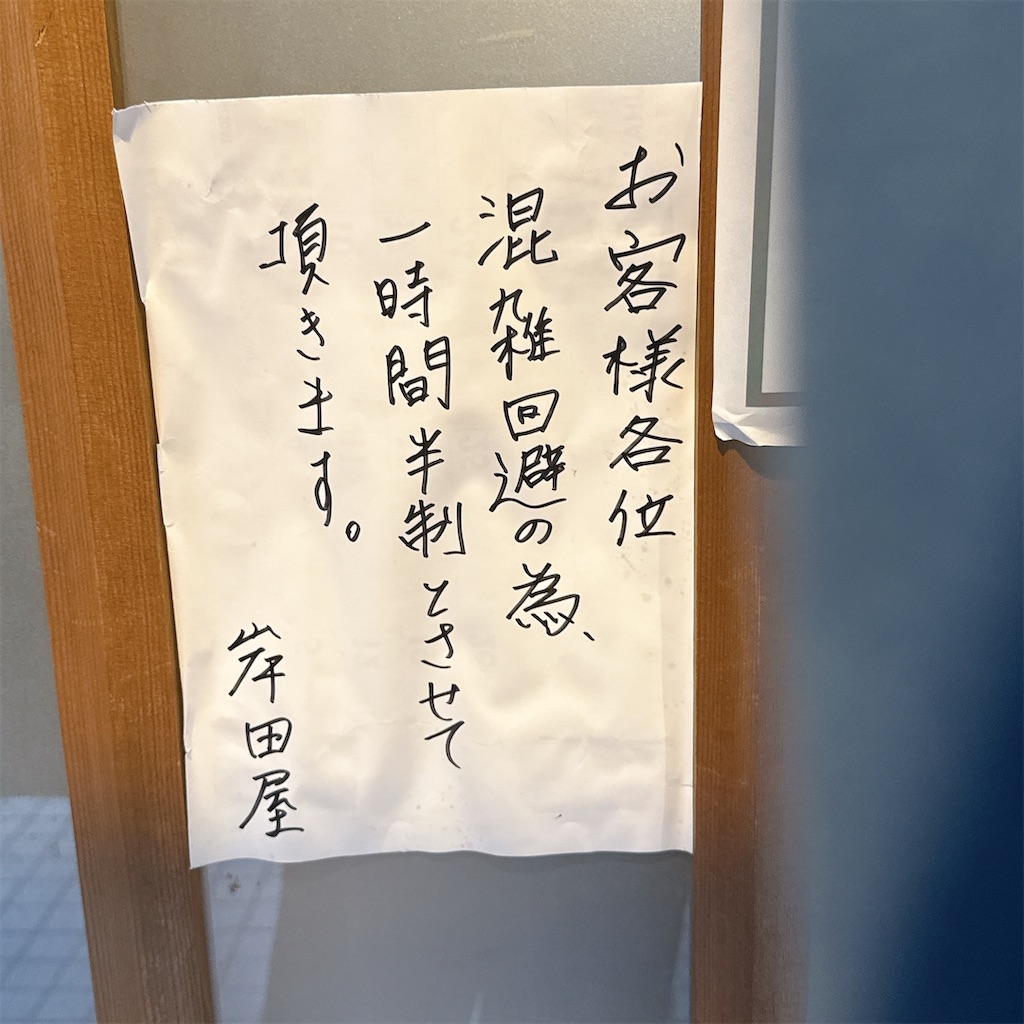 お客様各位
混雑回避の為、
一時間半制とさせて
頂きます。
岸田屋